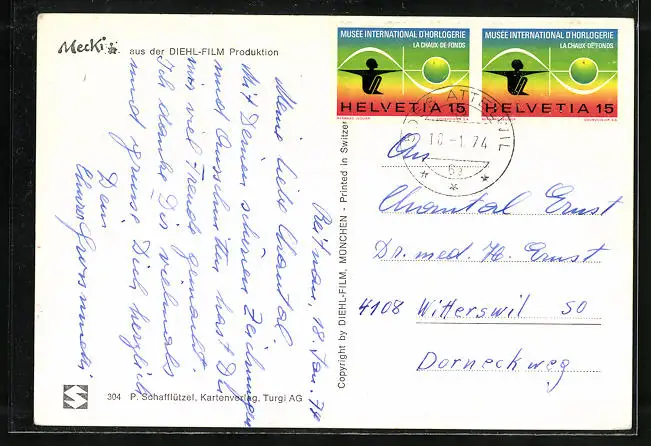 Mecki
aus der DIEHL-FILM Produktion
Reitnau, 18. Jan. 74
Meine liebe Chantal.
Mit Deinen schönen Zeichnungen
und Ausschnitten hast Du
mir viel Freude gemacht.
Ich danke Dir vielmals
und grüsse Dich herzlich
Dein
304 P. Schafflützel, Kartenverlag, Turgi AG
Copyright by DIEHL-FILM, MÜNCHEN - Printed in Switzer
MUSÉE INTERNATIONAL D'HORLOGERIE
LA CHAUX-DE-FONDS
HELVETIA 15
MUSÉE INTERNATIONAL D'HORLOGERIE
LA CHAUX-DE-FONDS
HELVETIA 15
-1.74
An
Chantal Ernst
Dr. med. H. Ernst
4108 Witterswil SO
Dorneckweg